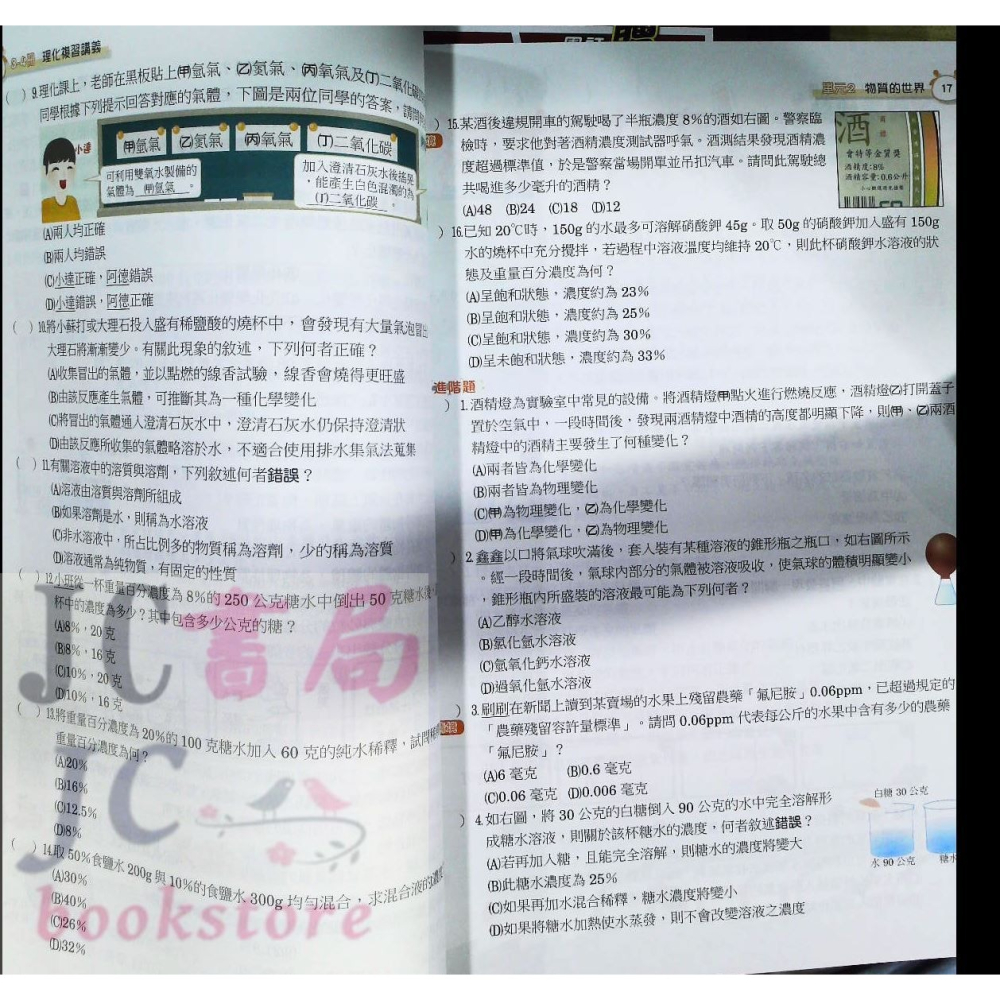 理化複習講義
( ) 9.理化課上,老師在黑板貼上甲氬氣、乙氦氣、丙氧氣及丁二氧化碳
同學根據下列提示回答對應的氣體,下圖是兩位同學的答案,請問
小達
甲氬氣
乙氦氣
丙氧氣
丁二氧化碳
可利用雙氧水製備的
氣體為 甲氬氣 。
加入澄清石灰水後搖晃
,能產生白色混濁的為
丁二氧化碳 。
(A)兩人均正確
(B)兩人均錯誤
(C)小達正確,阿德錯誤
(D)小達錯誤,阿德正確
( ) 10.將小蘇打或大理石投入盛有稀鹽酸的燒杯中,會發現有大量氣泡冒出
大理石將漸漸變少。有關此現象的敘述,下列何者正確?
(A)收集冒出的氣體,並以點燃的線香試驗,線香會燒得更旺盛
(B)由該反應產生氣體,可推斷其為一種化學變化
(C)將冒出的氣體通入澄清石灰水中,澄清石灰水仍保持澄清狀
(D)由該反應所收集的氣體略溶於水,不適合使用排水集氣法蒐集
( ) 11.有關溶液中的溶質與溶劑,下列敘述何者錯誤?
(A)溶液由溶質與溶劑所組成
(B)如果溶劑是水,則稱為水溶液
(C)非水溶液中,所占比例多的物質稱為溶劑,少的稱為溶質
(D)溶液通常為純物質,有固定的性質
( ) 12.小班從一杯重量百分濃度為 8%的 250 公克糖水中倒出 50 克糖水後
杯中的濃度為多少?其中包含多少公克的糖?
(A)8%,20 克
(B)8%,16 克
(C)10%,20 克
(D)10%,16 克
( ) 13.將重量百分濃度為 20%的 100 克糖水加入 60 克的純水稀釋,試問
重量百分濃度為何?
(A)20%
(B)16%
(C)12.5%
(D)8%
( ) 14.取 50%食鹽水 200g 與 10%的食鹽水 300g 均勻混合,求混合液的濃度
(A)30%
(B)40%
(C)26%
(D)32%
JC書局
JC
bookstore
單元2 物質的世界 17
) 15.某酒後違規開車的駕駛喝了半瓶濃度 8%的酒如右圖。警察臨
檢時,要求他對著酒精濃度測試器呼氣。酒測結果發現酒精濃
度超過標準值,於是警察當場開單並吊扣汽車。請問此駕駛總
共喝進多少毫升的酒精?
(A)48 (B)24 (C)18 (D)12
酒
會特等金質獎
酒精度:8%
酒精容量:0.6公升
) 16.已知 20℃時,150g 的水最多可溶解硝酸鉀 45g。取 50g 的硝酸鉀加入盛有 150g
水的燒杯中充分攪拌,若過程中溶液溫度均維持 20℃,則此杯硝酸鉀水溶液的狀
態及重量百分濃度為何?
(A)呈飽和狀態,濃度約為 23%
(B)呈飽和狀態,濃度約為 25%
(C)呈飽和狀態,濃度約為 30%
(D)呈未飽和狀態,濃度約為 33%
進階題
) 1.酒精燈為實驗室中常見的設備。將酒精燈甲點火進行燃燒反應,酒精燈乙打開蓋子
置於空氣中,一段時間後,發現兩酒精燈中酒精的高度都明顯下降,則甲、乙兩酒
精燈中的酒精主要發生了何種變化?
(A)兩者皆為化學變化
(B)兩者皆為物理變化
(C)甲為物理變化,乙為化學變化
(D)甲為化學變化,乙為物理變化
) 2.鑫鑫以口將氣球吹滿後,套入裝有某種溶液的錐形瓶之瓶口,如右圖所示
。經一段時間後,氣球內部分的氣體被溶液吸收,使氣球的體積明顯變小
,錐形瓶內所盛裝的溶液最可能為下列何者?
(A)乙醇水溶液
(B)氯化氫水溶液
(C)氫氧化鈣水溶液
(D)過氧化氫水溶液
) 3.刷刷在新聞上讀到某賣場的水果上殘留農藥「氟尼胺」0.06ppm,已超過規定的
「農藥殘留容許量標準」。請問 0.06ppm 代表每公斤的水果中含有多少的農藥
「氟尼胺」?
(A)6 毫克 (B)0.6 毫克
(C)0.06 毫克 (D)0.006 毫克
) 4.如右圖,將 30 公克的白糖倒入 90 公克的水中完全溶解形
成糖水溶液,則關於該杯糖水的濃度,何者敘述錯誤?
(A)若再加入糖,且能完全溶解,則糖水的濃度將變大
(B)此糖水濃度為 25%
(C)如果再加水混合稀釋,糖水濃度將變小
(D)如果將糖水加熱使水蒸發,則不會改變溶液之濃度
白糖 30 公克
水 90 公克
糖水